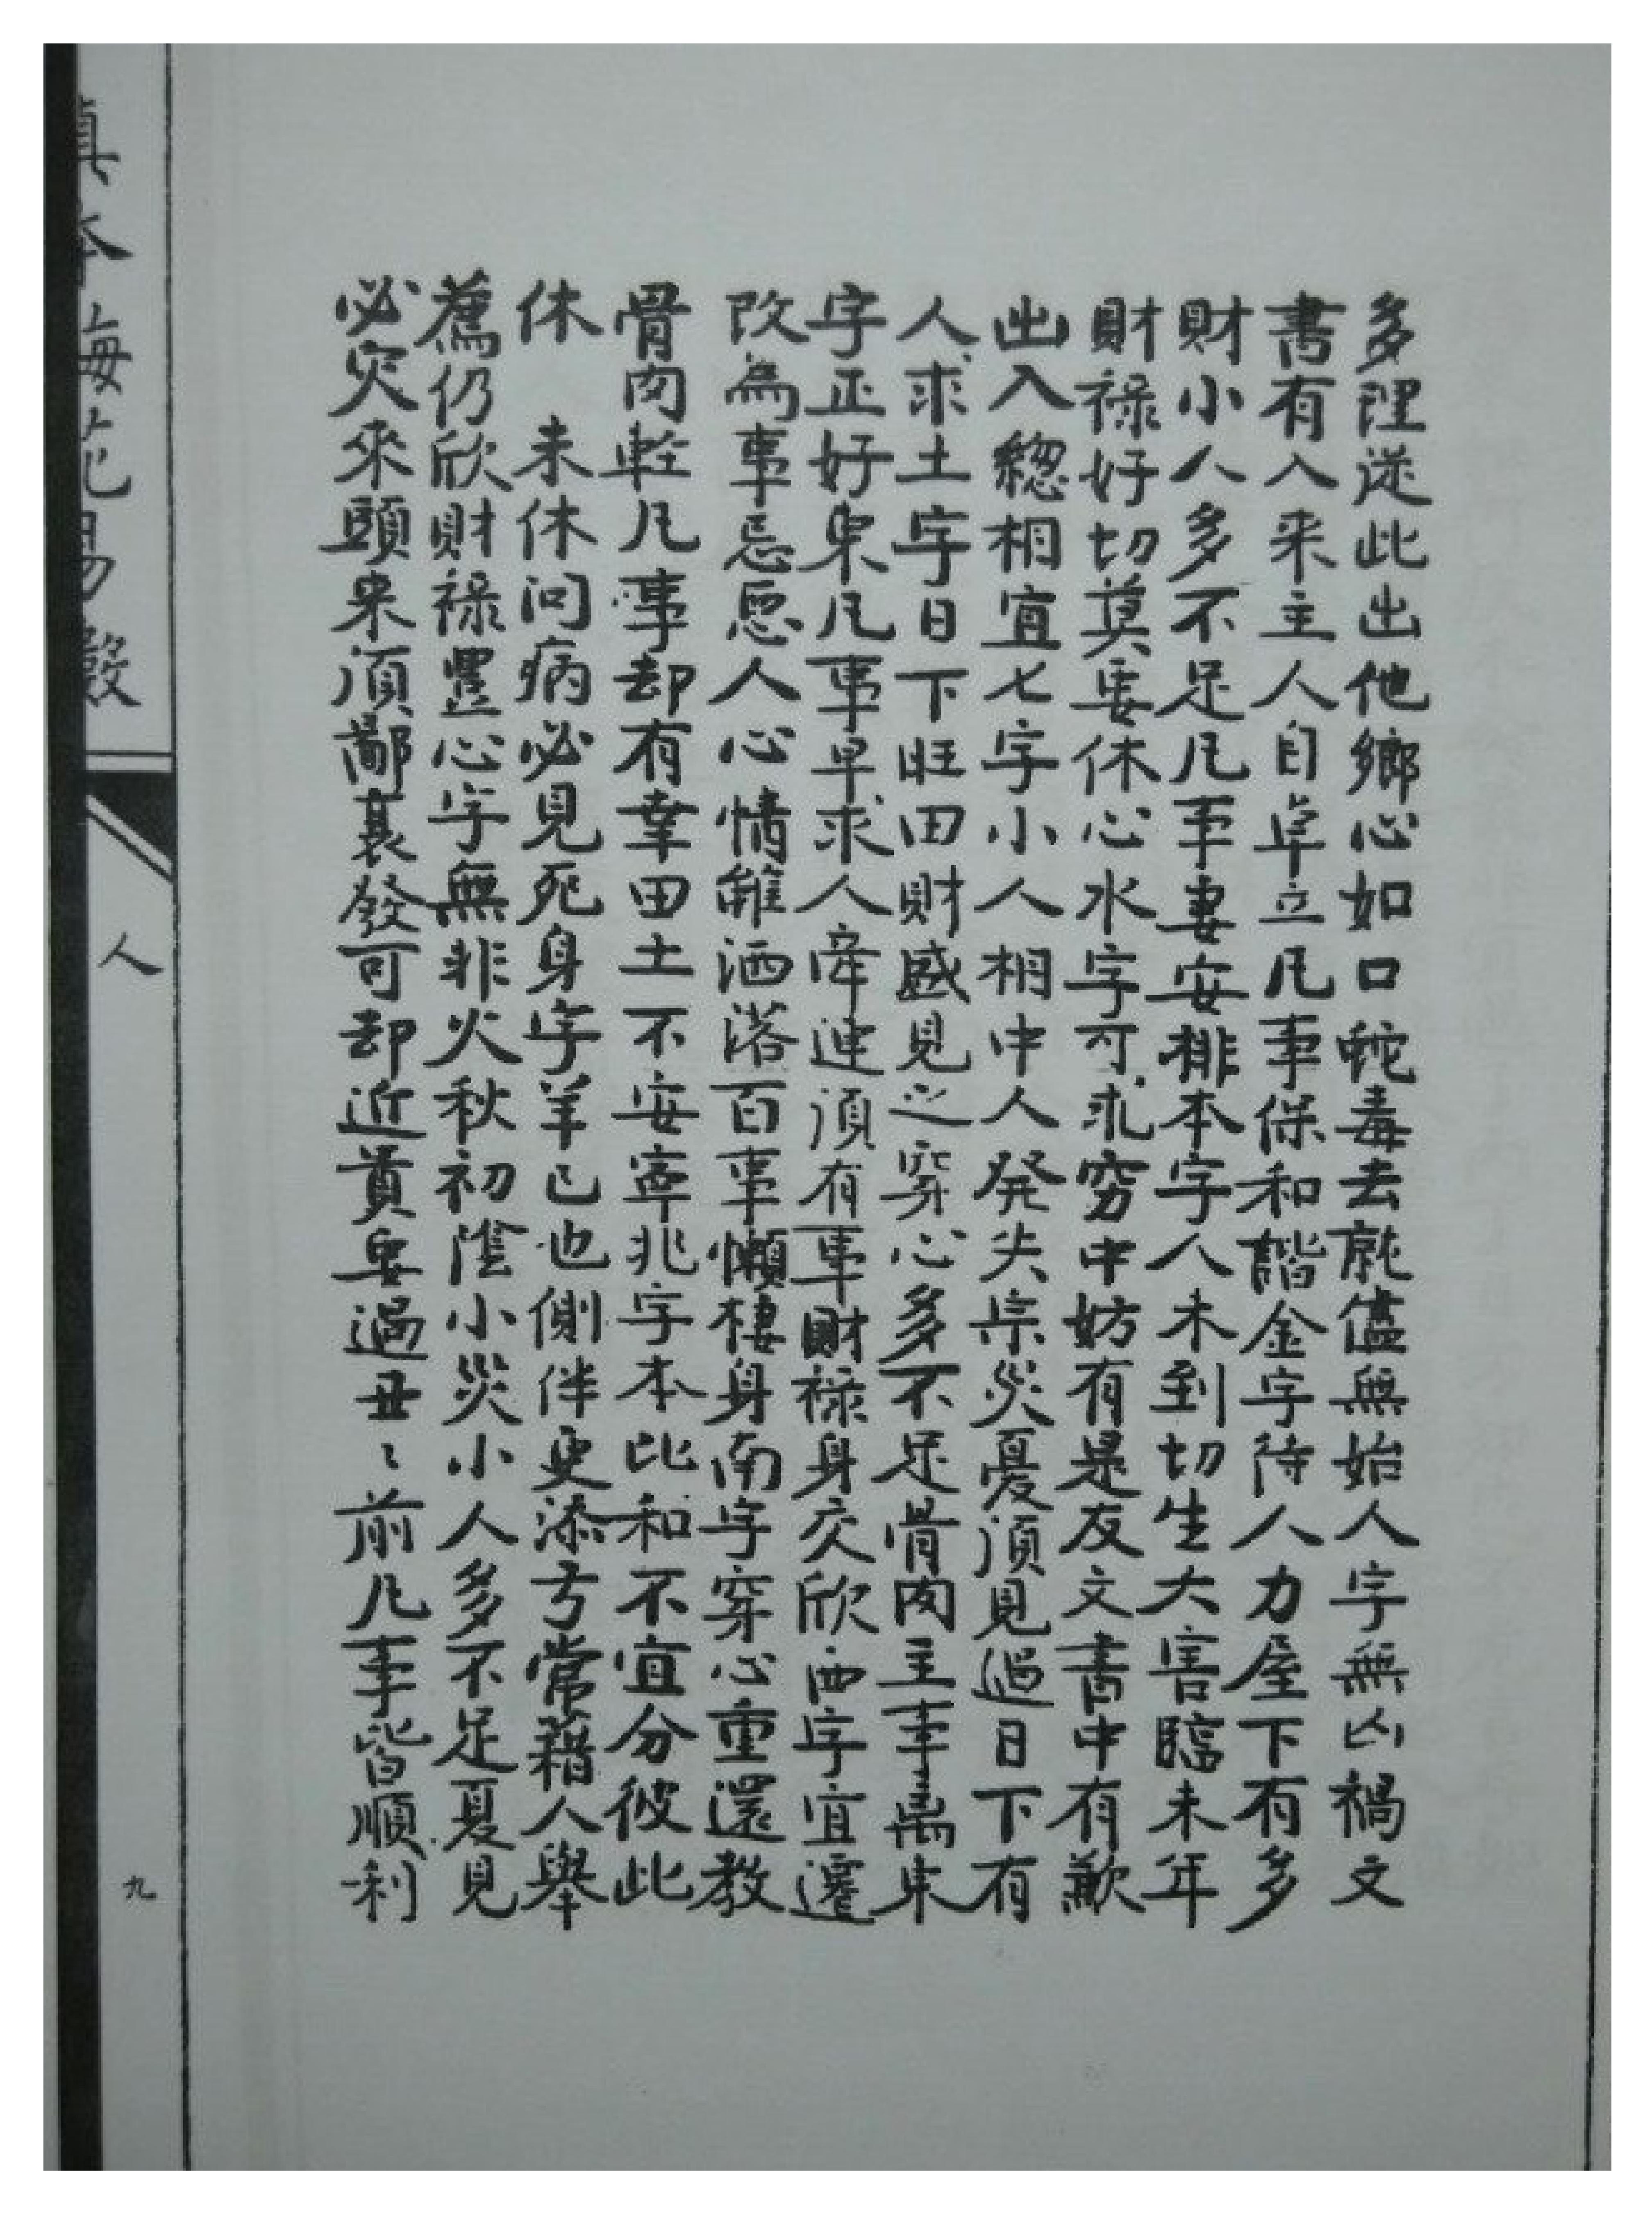 多理從此出他鄉心如口蛇毒去就儘無始人字無凶禍文
書有人来主人自卓立凡事保和諧金字待人力屋下有多
財小人多不足凡事妻安排本字人未到切生大害臨未年
財祿好切莫要休心水字可求窮中妨有是友文書中有歉
出入總相宜七字小人相中人発失宗災憂須見過日下有
人求土字日下旺田財盛見之穿心多不足骨肉主事萬東
字正好東凡事早求人牽連須有事財祿身交欣西字宜遷
改為事忌惡人心情雖洒落百事懶棲身南字穿心重還教
骨肉軽凡事却有幸田土不安寧兆字本比和不宜分彼此
休 未休问病必見死身字羊已也側伴更添亏常藉人舉
薦仍欣財祿豊心字無非火秋初陰小災小人多不足夏見
必灾來頭来須鄙裏發可却近貴要過丑丶前凡事皆順利
真本梅花易數
人
九